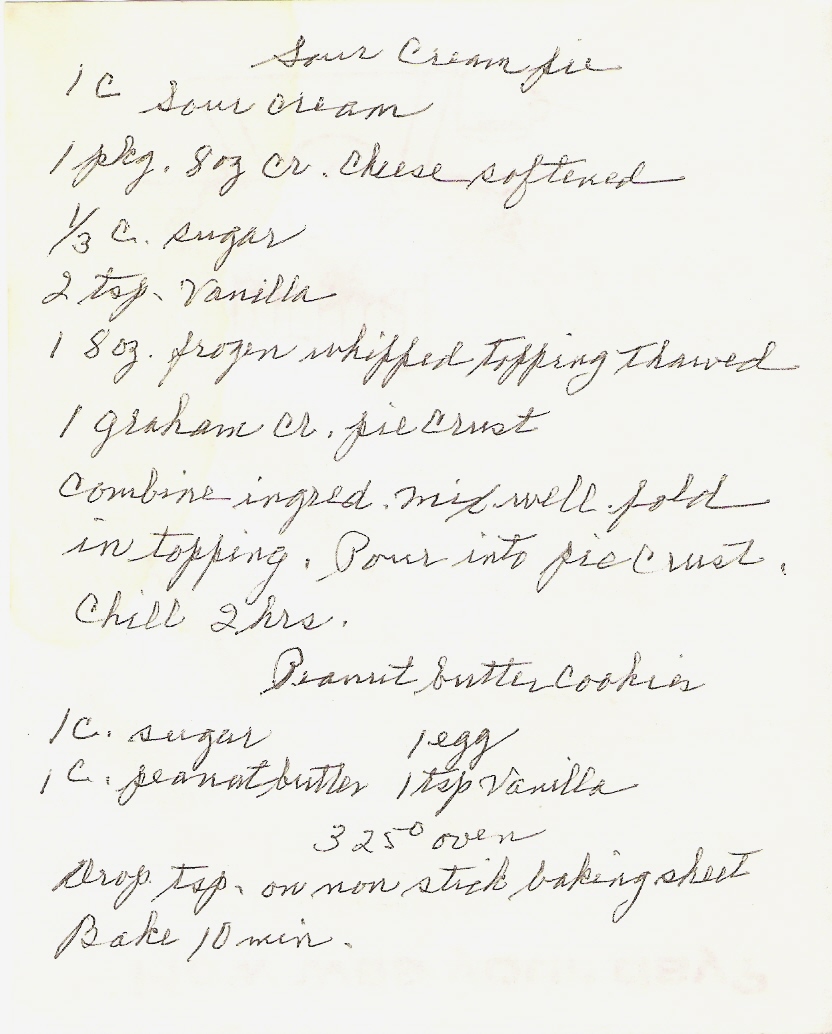 Sour Cream pie
1 C Sour cream
1 pkg. 8oz cr. cheese softened
1/3 c. sugar
2 tsp. Vanilla
1 8oz. frozen whipped topping thawed
1 graham cr. pie crust
Combine ingred. mix well. fold
in topping. Pour into pie crust.
Chill 2 hrs.
Peanut butter Cookies
1 C. sugar 1 egg
1 C. peanut butter 1 tsp Vanilla
325° oven
Drop tsp. on non stick baking sheet
Bake 10 min.